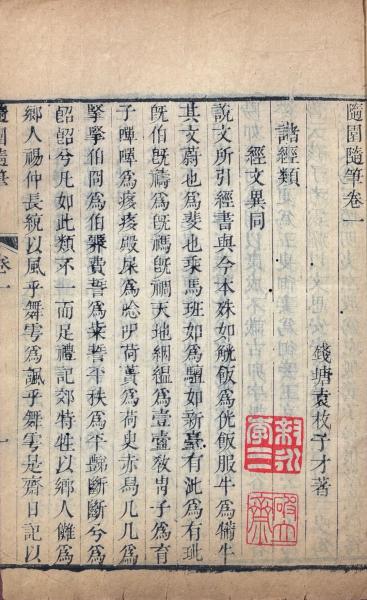 隨園隨筆卷一
錢塘袁枚子才著
諸經類
經文異同
說文所引經書與今本殊如觥飯爲侊飯服牛爲犕牛
其文蔚也爲斐也乘馬班如爲驙如新臺有泚爲有玼
旣伯旣禱爲旣禡旣禂天地絪縕爲壹㚃敎胄子爲育
子嘽嘽爲痑痑殿屎爲唸㕧荷蕢爲荷臾赤舄几几爲
掔掔伯冏爲伯費誓爲粊誓平秩爲平斷斷兮爲
兮凡如此類不一而足禮記郊特牲以鄉人儺爲
鄉人禓仲長統以風乎舞雩爲諷乎舞雩是齋日記以
隨園隨筆 卷一 一